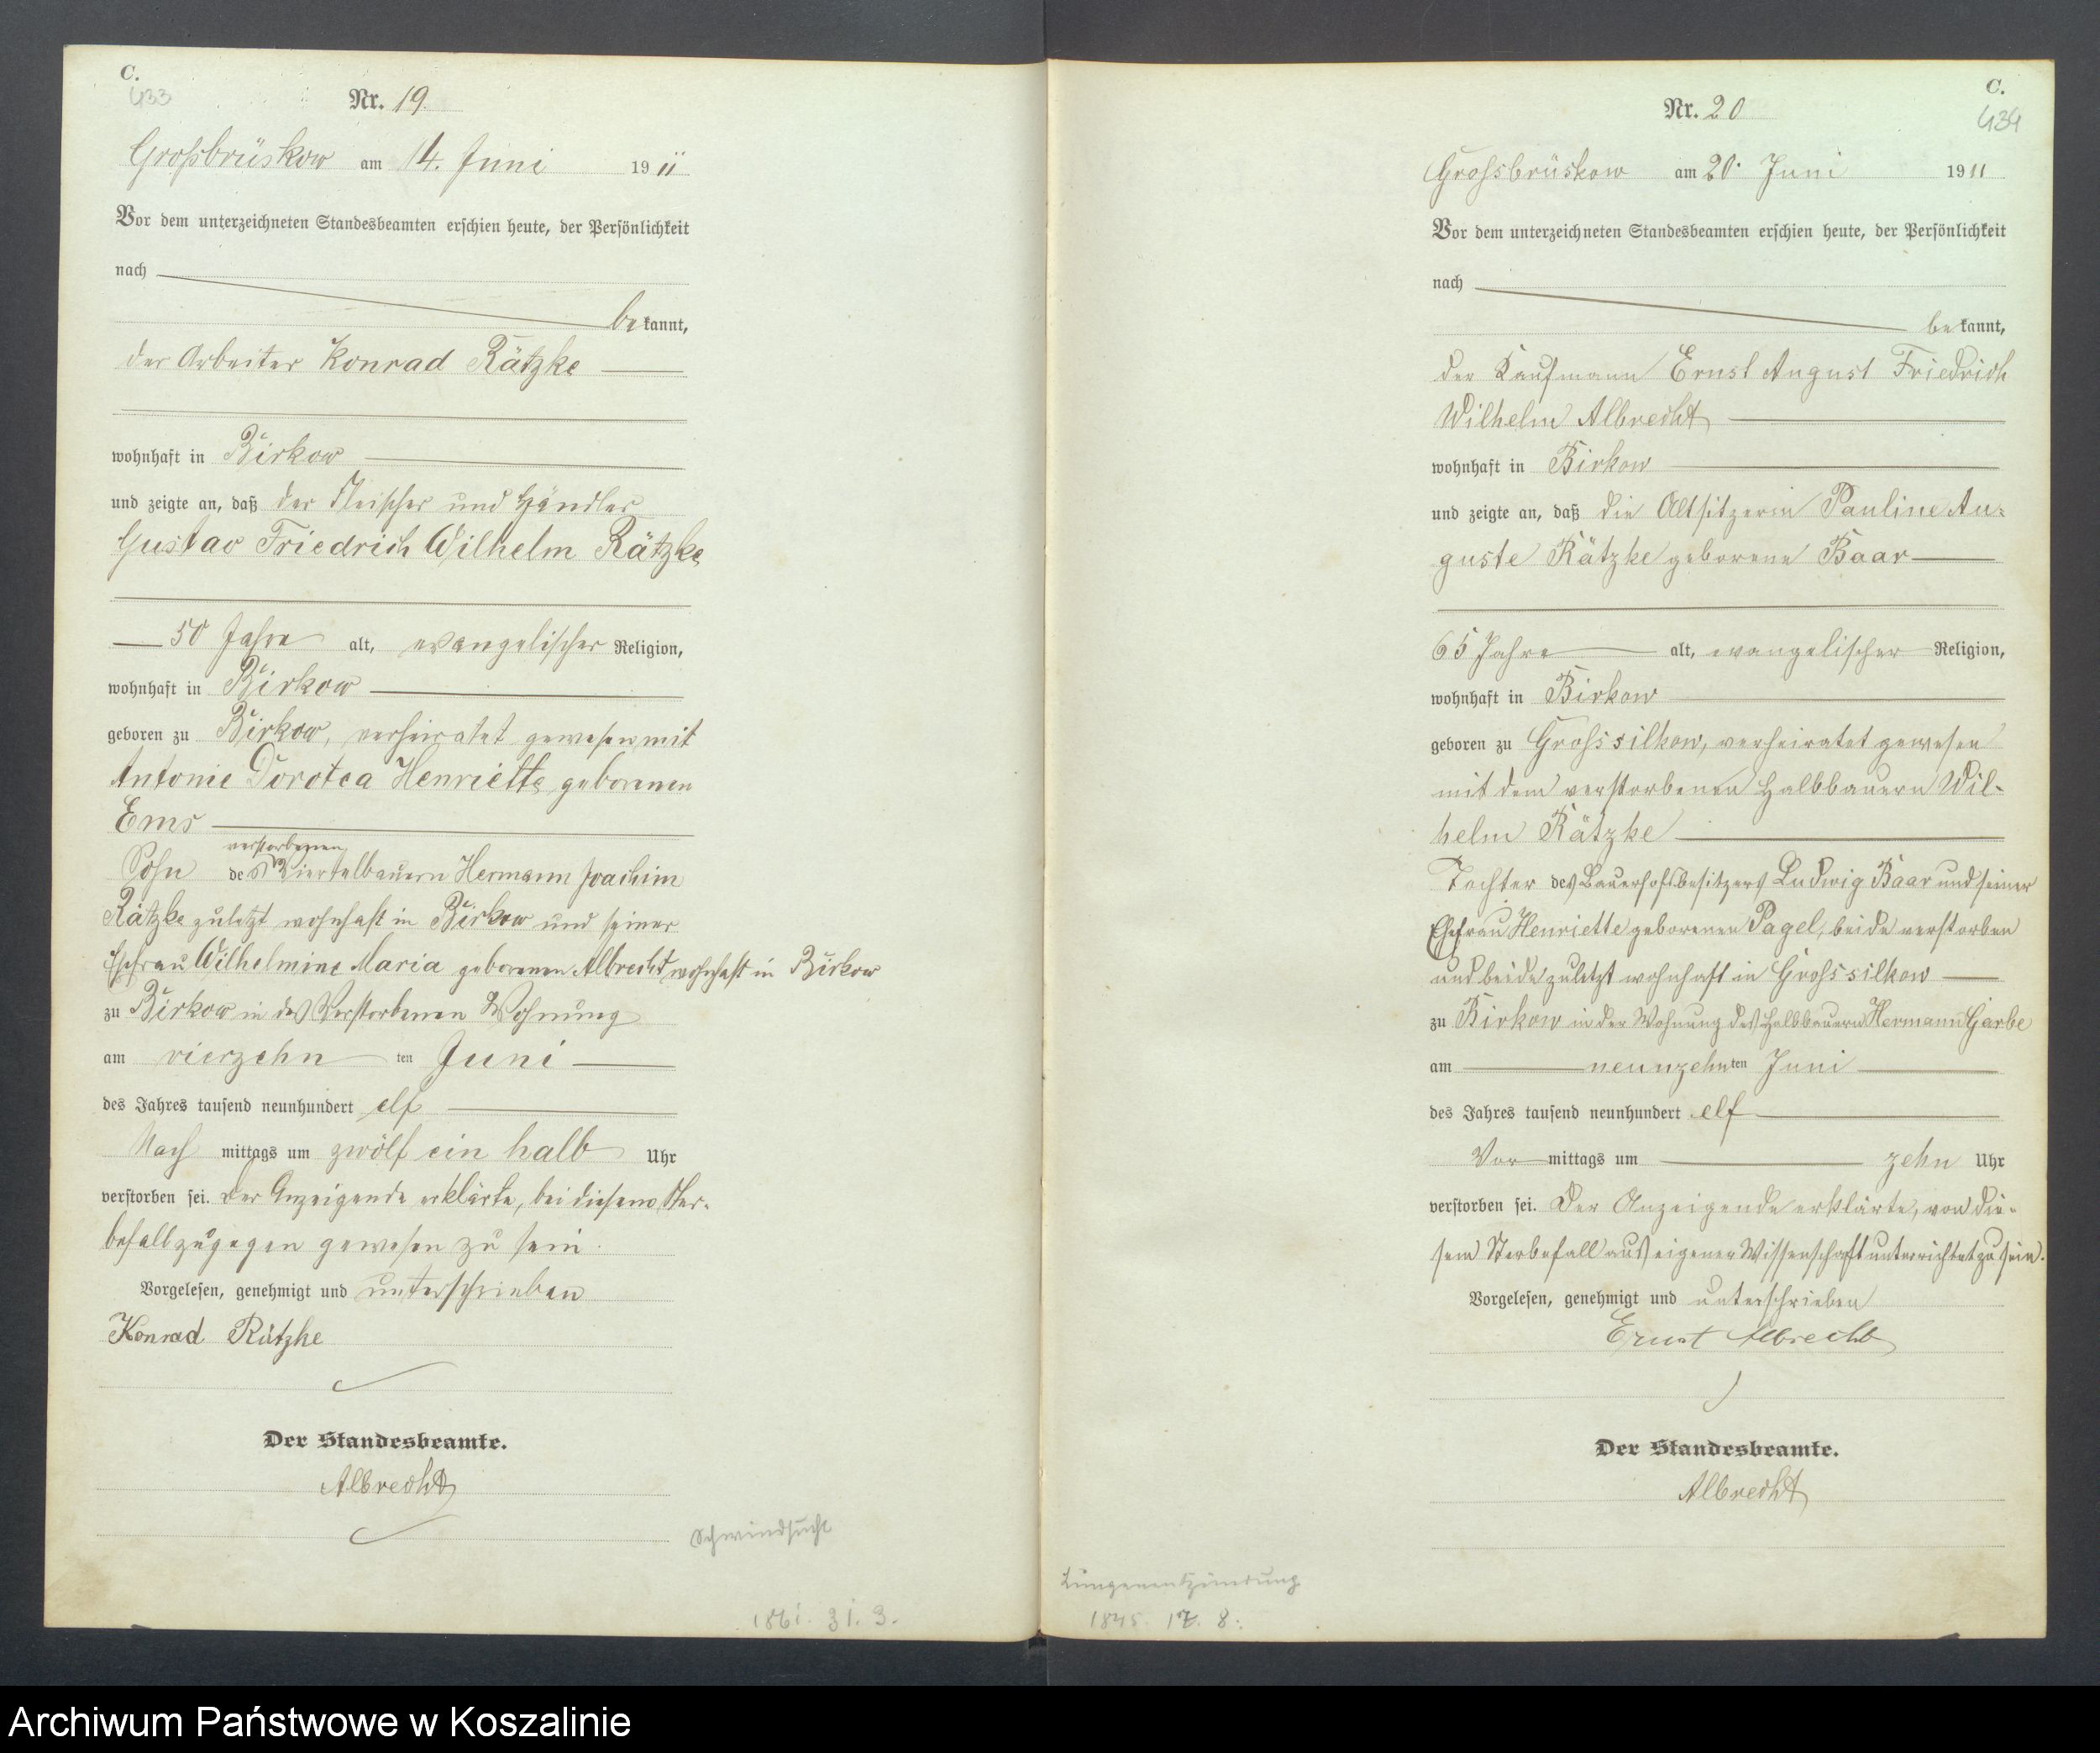 C.
433
Nr. 19.
Großbrüskow am 14. Juni 1911
Vor dem unterzeichneten Standesbeamten erschien heute, der Persönlichkeit
nach
bekannt,
der Arbeiter Konrad Rätzke
wohnhaft in Birkow
und zeigte an, daß der Fleischer und Händler
Gustav Friedrich Wilhelm Rätzke
50 Jahre alt, evangelischer Religion,
wohnhaft in Birkow
geboren zu Birkow, verheiratet gewesen mit
Antonie Dorotea Henriette geborenen
Ems
verstorbenen
Sohn des Viertelbauern Hermann Joachim
Rätzke zuletzt wohnhaft in Birkow und seiner
Ehefrau Wilhelmine Maria geborenen Albrecht wohnhaft in Birkow
zu Birkow in des Verstorbenen Wohnung
am vierzehn ten Juni
des Jahres tausend neunhundert elf
Nach mittags um zwölf ein halb Uhr
verstorben sei. Der Anzeigende erklärte, bei diesem Ster-
befall zugegen gewesen zu sein.
Vorgelesen, genehmigt und unterschrieben
Konrad Rätzke
Der Standesbeamte.
Albrecht
Schwindsucht
1861. 31. 3.
C.
434
Nr. 20
Grossbrüskow am 20. Juni 1911
Vor dem unterzeichneten Standesbeamten erschien heute, der Persönlichkeit
nach
bekannt,
der Kaufmann Ernst August Friedrich
Wilhelm Albrecht
wohnhaft in Birkow
und zeigte an, daß die Altsitzerin Pauline Au-
guste Rätzke geborene Baar
65 Jahre alt, evangelischer Religion,
wohnhaft in Birkow
geboren zu Grosssilkow, verheiratet gewesen
mit dem verstorbenen Halbbauern Wil-
helm Rätzke
Tochter des Bauerhofsbesitzers Ludwig Baar und seiner
Ehefrau Henriette geborenen Pagel, beide verstorben
und beide zuletzt wohnhaft in Grosssilkow
zu Birkow in der Wohnung des Halbbauern Hermann Garbe
am neunzehnten Juni
des Jahres tausend neunhundert elf
Vor mittags um zehn Uhr
verstorben sei. Der Anzeigende erklärte, von die-
sem Sterbefall aus eigener Wissenschaft unterrichtet zu sein.
Vorgelesen, genehmigt und unterschrieben
Ernst Albrecht
Der Standesbeamte.
Albrecht
Lungenentzündung
1845. 17. 8.
Archiwum Państwowe w Koszalinie